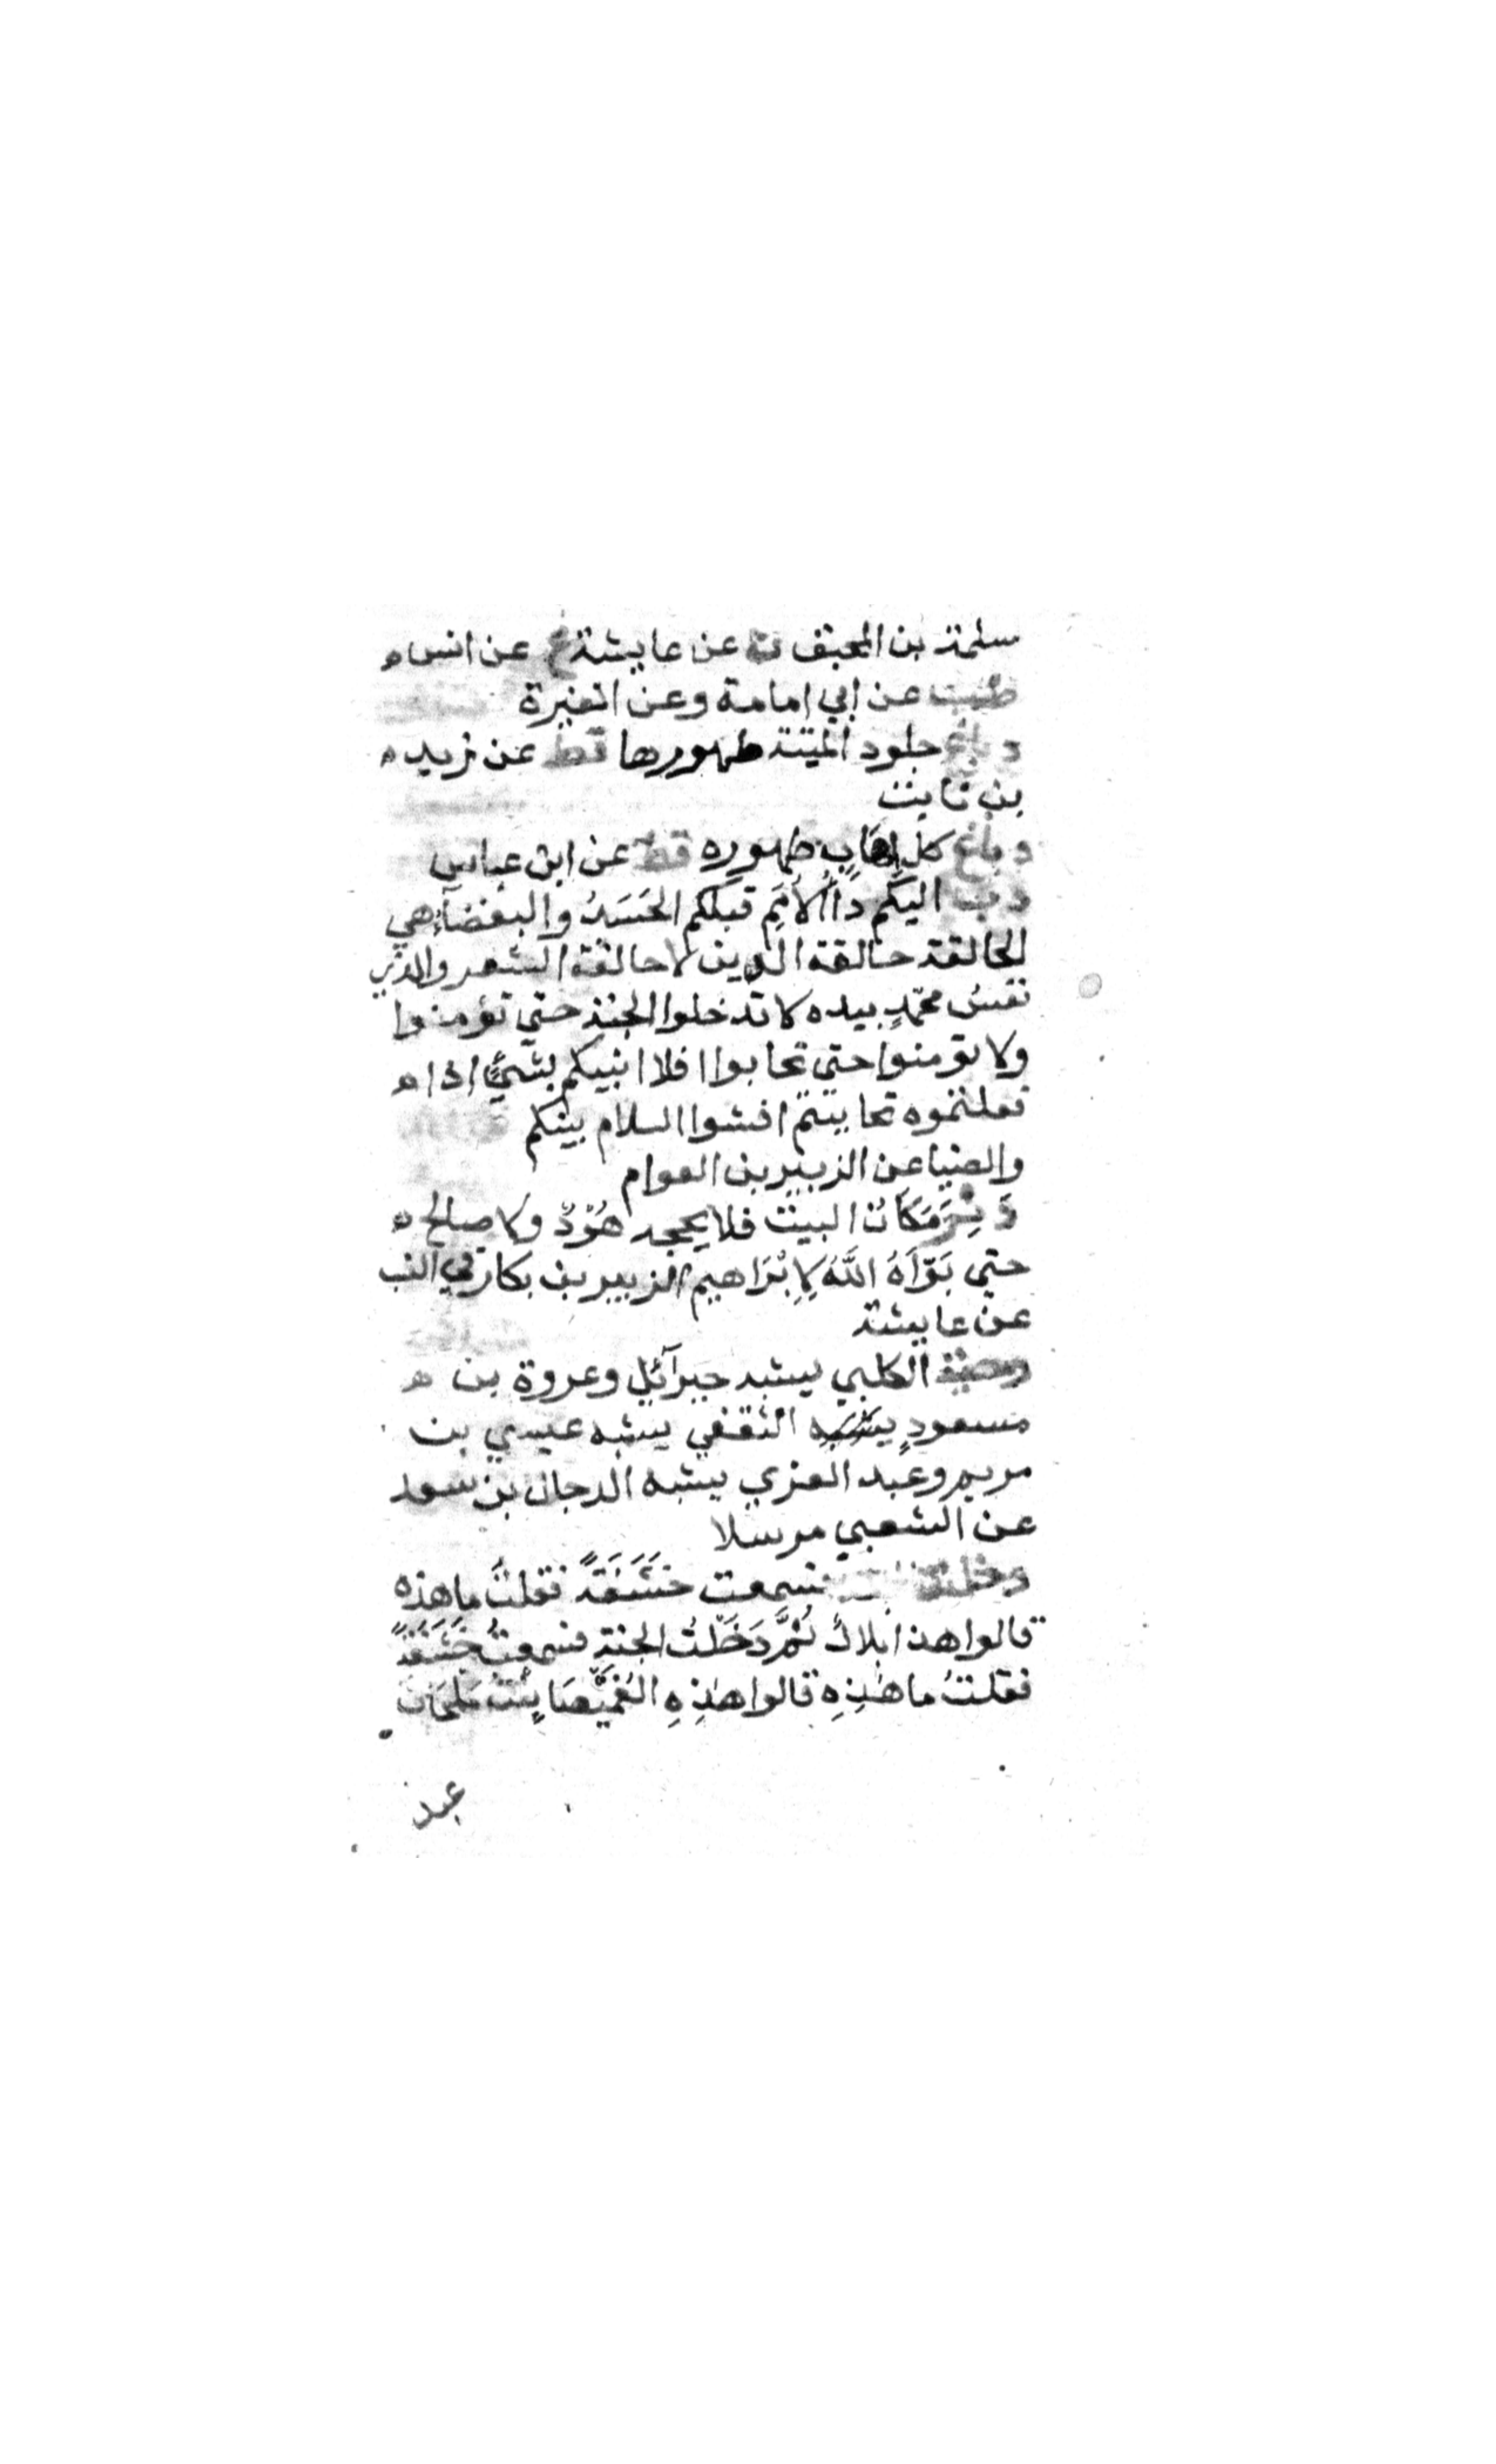 سلمة بن المحبق ن عن عايشة ع عن انس ه
طب عن ابي امامة وعن المغيرة
دباغ جلود الميتة طهورها قط عن زيد ه
بن ثابت
دباغ كل اهاب طهوره قط عن ابن عباس
دب اليكم دآُ الأُمَمِ قبلكم الحَسَدُ والبغضآءُ هي
الحالقة حالقة الدين لا حالقة الشعر والذي
نفسُ محمّدٍ بيده لا تدخلوا الجنة حتي تؤمنوا
ولا تومنوا حتي تحابوا افلا انبيكم بشيءٍ اذا ه
فعلتموه تحاببتم افشوا السلام بينكم
والضيا عن الزبير بن العوام
دَثِرَ مَكَانُ البيت فلا يحجه هُوْدٌ ولا صالح ه
حتي بَوّأَهُ اللَّهُ لِإِبْرَاهيم الزبير بن بكار في النسب
عن عايشة
دحية الكلبي يشبه جبرآئيل وعروة بن ه
مسعودٍ يشبه الثقفي يشبه عيسي بن
مريم وعبد العزي يشبه الدجال بن سعد
عن الشعبي مرسلا
دخلت فسمعت خَشَفَةً فقلتُ ما هذه
قالوا هذا بلالٌ ثُمَّ دَخَلْتُ الجنة فسمعتُ خَشَفَةً
فقلتُ ما هٰذِهِ قالوا هٰذِهِ الغُمَيْصَا بِنْتُ مَلْحَان
عبد